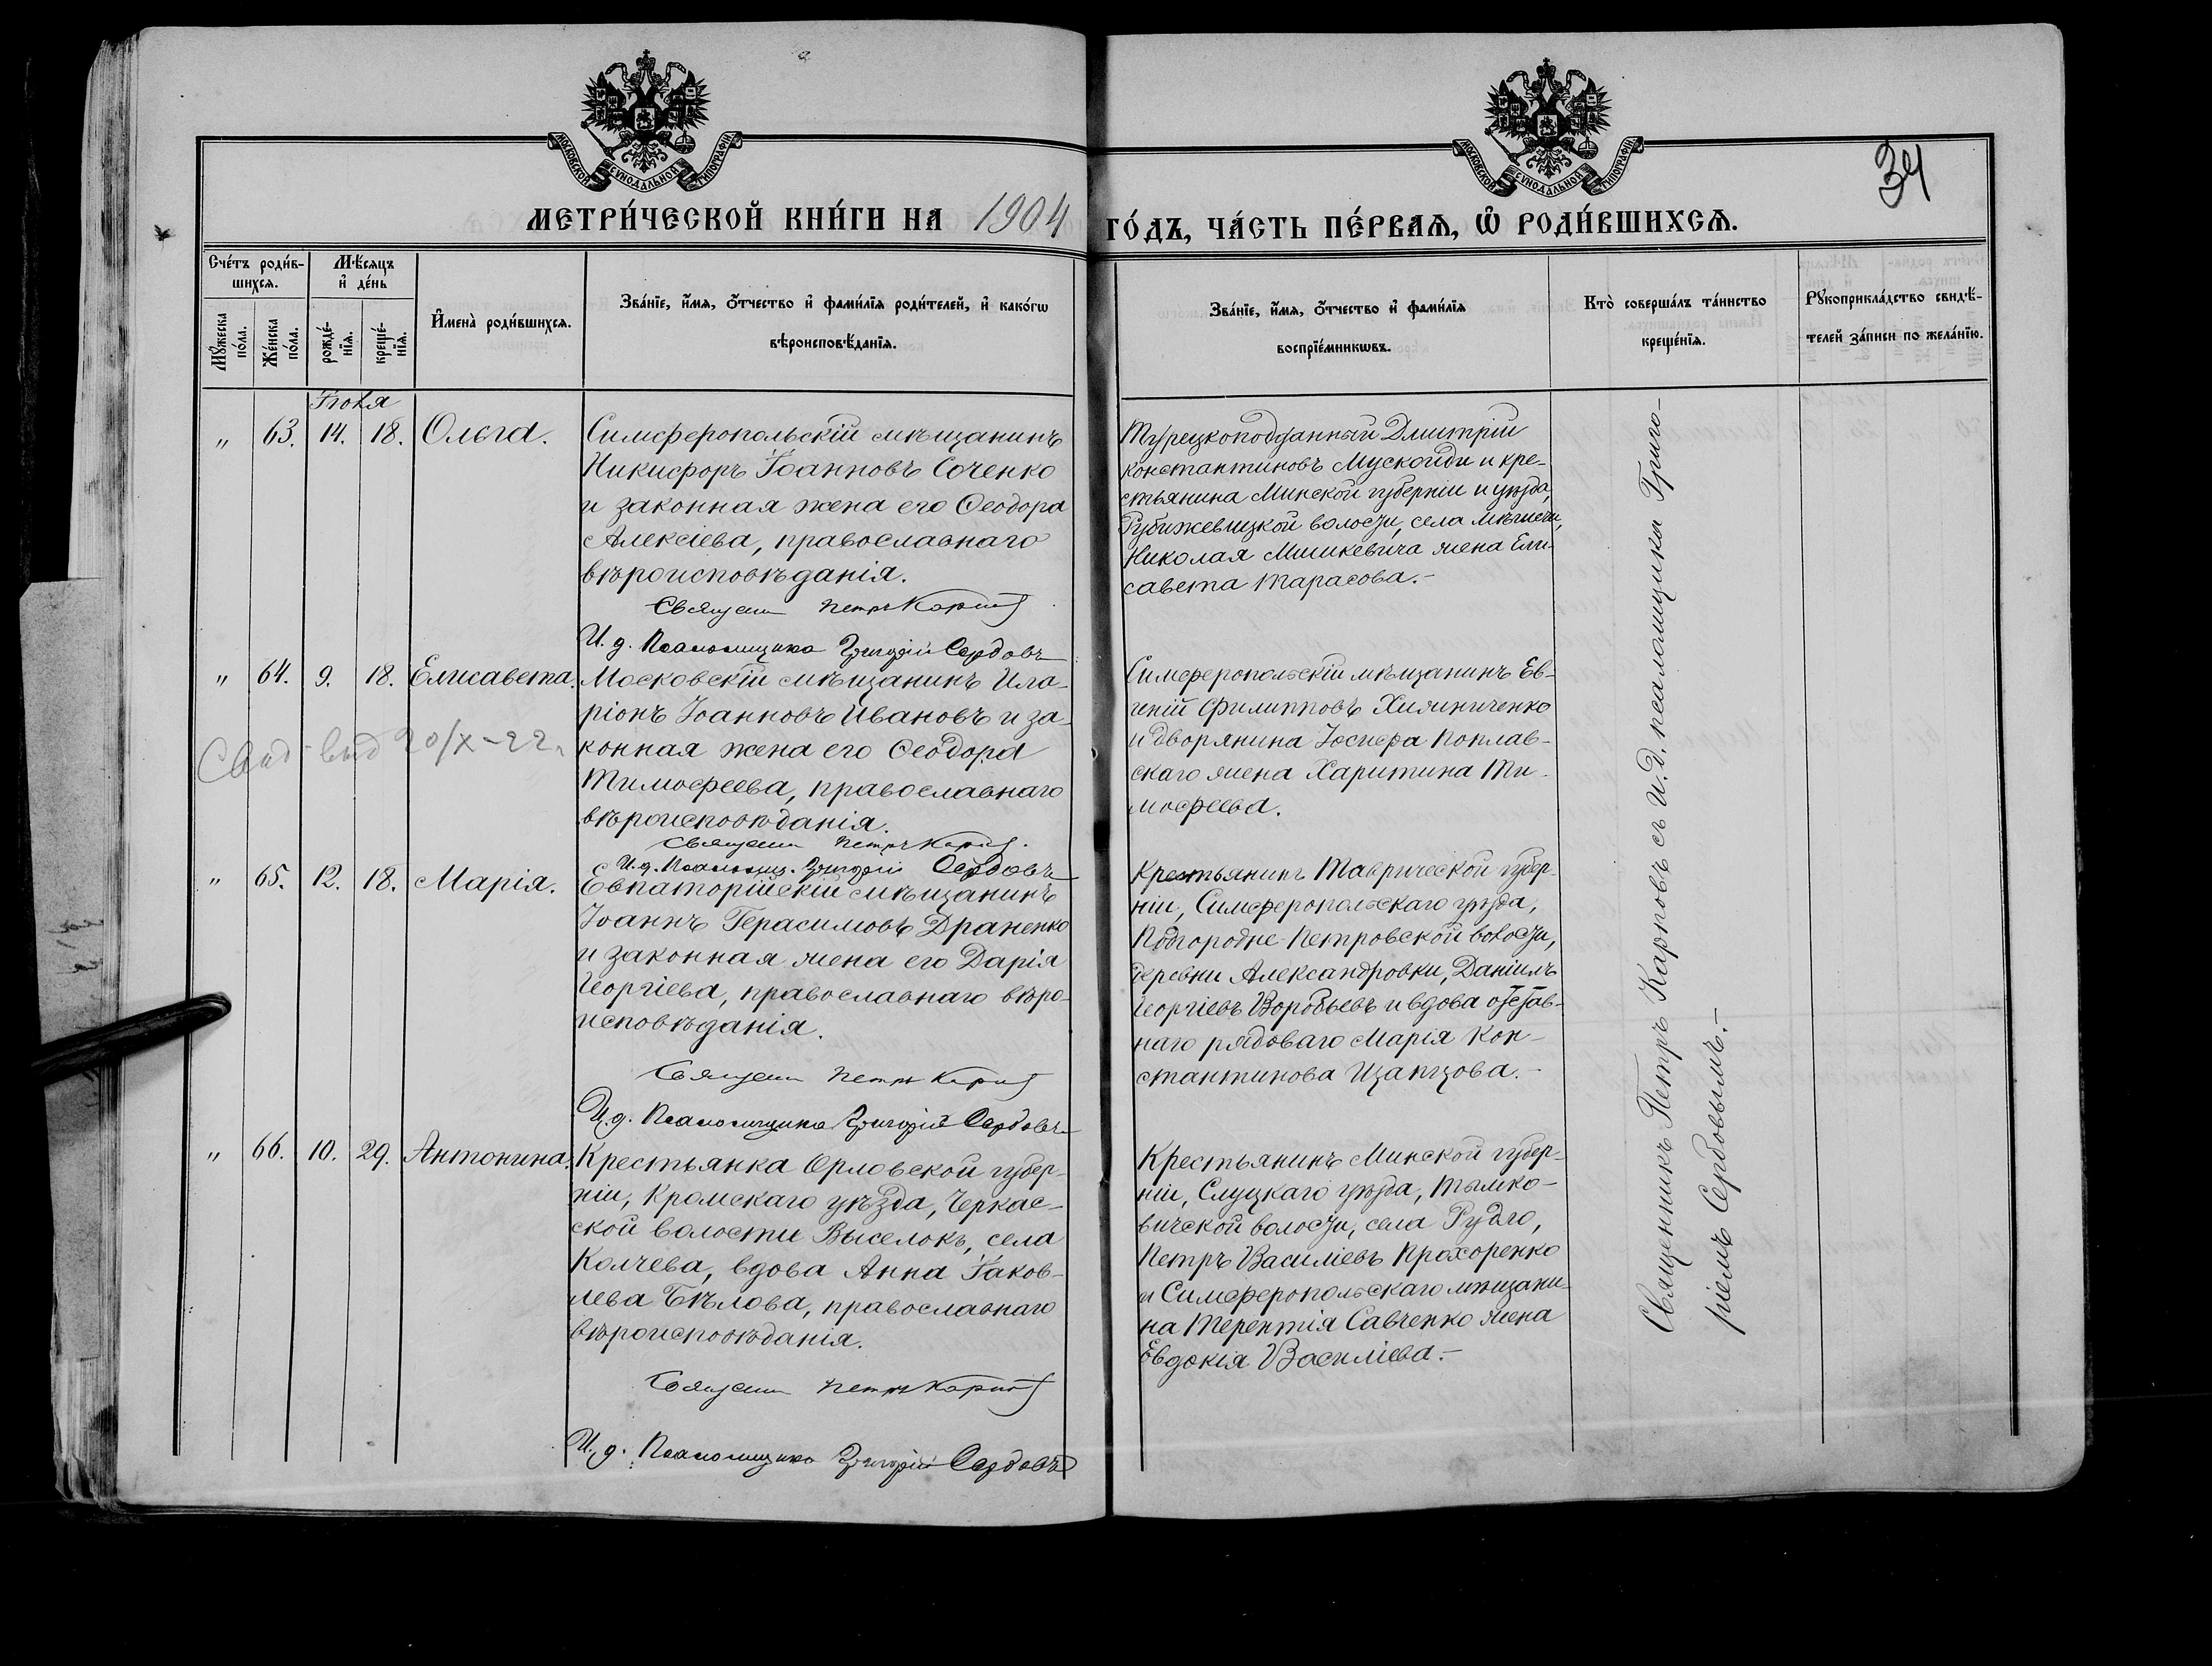 МОСКОВСКОЙ СѴНОДАЛЬНОЙ ТИПОГРАФІИ
МОСКОВСКОЙ СѴНОДАЛЬНОЙ ТИПОГРАФІИ
34
МЕТРИ́ЧЕСКОЙ КНИ́ГИ НА 1904 ГО́ДЪ, ЧА́СТЬ ПЕ́РВАѦ, Ѡ҆ РОДИ́ВШИХСѦ.
Сче́тъ роди́в-
шихсѧ.
Мꙋ́жеска по́ла.
Же́нска по́ла.
Мѣ́сѧцъ
и҆ де́нь
рожде́-
нїѧ.
креще́-
нїѧ.
И҆мена̀ роди́вшихсѧ.
Зва́нїе, и҆́мѧ, ѻ҆́тчество и҆ фами́лїѧ роди́телей, и҆ како́гѡ
вѣроисповѣ́данїѧ.
Зва́нїе, и҆́мѧ, ѻ҆́тчество и҆ фами́лїѧ
воспрїе́мникѡвъ.
Кто̀ соверша́лъ та́инство
креще́нїѧ.
Рꙋкоприкла́дство свидѣ́-
телей за́писи по жела́нїю.
Іюня
" 63. 14. 18. Ольга.
Симферопольскій мѣщанинъ
Никифоръ Іоанновъ Соченко
и законная жена его Ѳеодора
Алексіева, православнаго
вѣроисповѣданія.
Священ Петръ Карпов
И. д. Псаломщика Григорій Сердовъ
Турецкоподданный Дмитрій
Константиновъ Мускойди и кре-
стьянина Минской губерніи и уѣзда,
Рубижевицкой волости, села
Николая Мишкевича жена Ели-
савета Тарасова.-
" 64. 9. 18. Елисавета.
Московскій мѣщанинъ Ила-
ріонъ Іоанновъ Ивановъ и за-
конная жена его Ѳеодора
Тимоѳеева, православнаго
вѣроисповѣданія.
Священ Петръ Карпов.
И. д. Псаломщ. Григорій Сердовъ
Свид - выд 20/X-22г
Симферопольскій мѣщанинъ Ев-
геній Филипповъ Химниченко
и дворянина Іосифа Поплав-
скаго жена Харитина Ти-
моѳеева.
" 65. 12. 18. Марія.
Евпаторійскій мѣщанинъ
Іоаннъ Герасимовъ Драненко
и законная жена его Дарія
Георгіева, православнаго вѣро-
исповѣданія.
Священ Петръ Карпов
И. д. Псаломщика Григорій Сердовъ
Крестьянинъ Таврической губер-
ніи, Симферопольскаго уѣзда,
Подгородне-Петровской волости,
деревни Александровки, Даніилъ
Георгіевъ Воробьевъ и вдова отстав-
наго рядоваго Марія Кон-
стантинова Цапцова.-
" 66. 10. 29. Антонина.
Крестьянка Орловской губер-
ніи, Кромскаго уѣзда, Черкас-
ской волости Выселокъ, села
Колчева, вдова Анна Іаков-
лева Бѣлова, православнаго
вѣроисповѣданія.
Священ Петръ Карпов
И. д. Псаломщика Григорій Сердовъ
Крестьянинъ Минской губер-
ніи, Слуцкаго уѣзда, Тымко-
вичской волости, села Рудго,
Петръ Василіевъ Прохоренко
и Симферопольскаго мѣщани-
на Терентія Савченко жена
Евдокія Василіева.-
Священникъ Петръ Карповъ съ И. д. псаломщика Григо-
ріемъ Сердовымъ.-